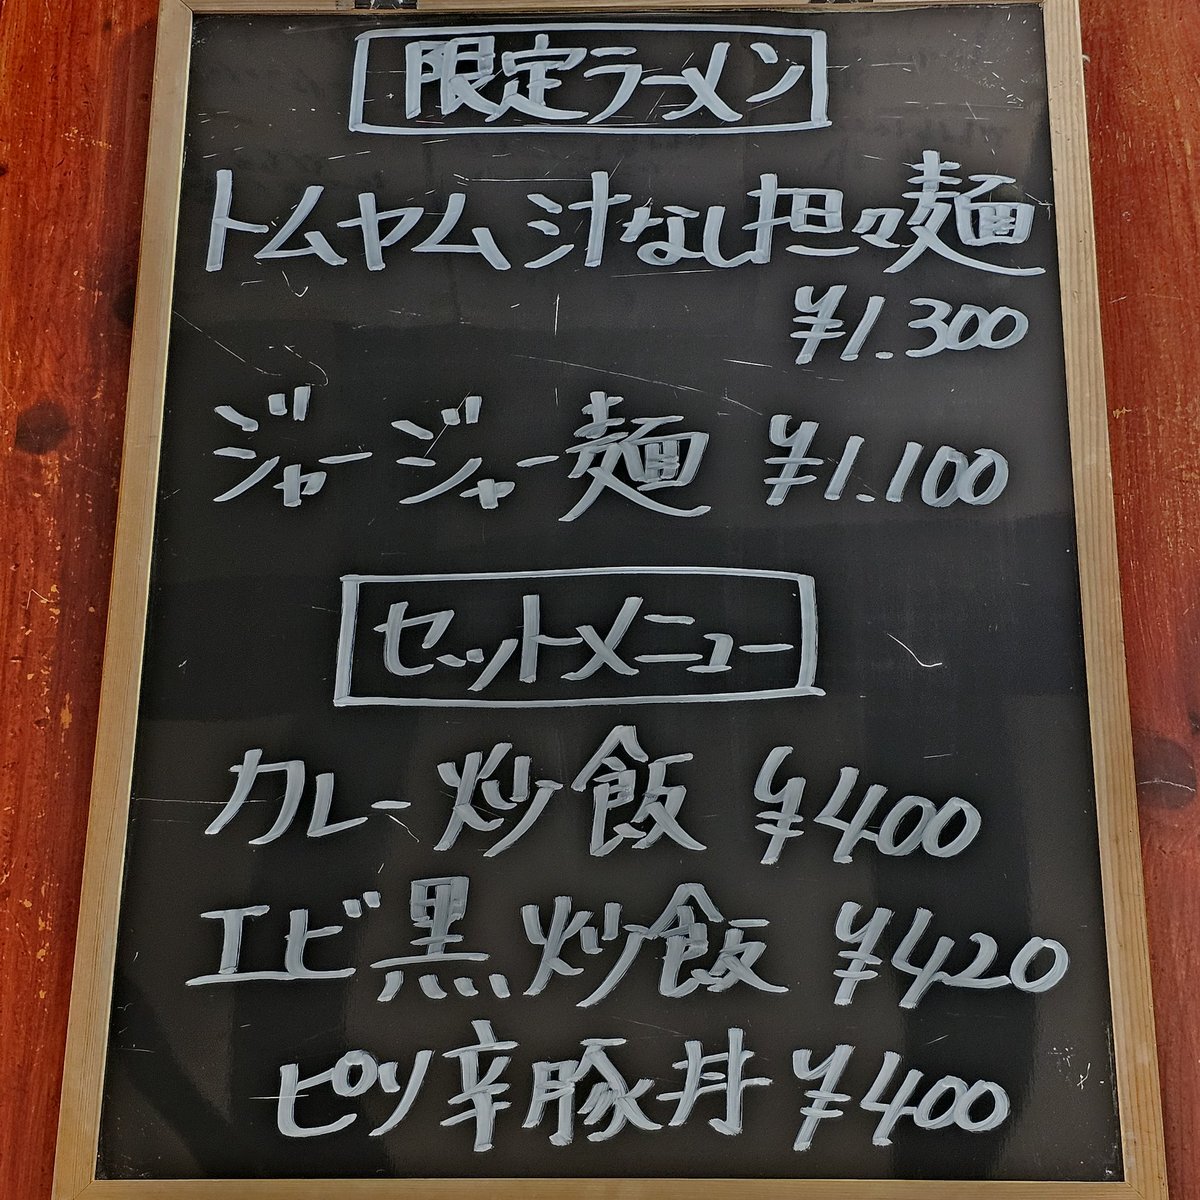 限定ラーメン
トムヤム汁なし担々麺
¥1.300
ジャージャー麺 ¥1.100
セットメニュー
カレー炒飯 ¥400
エビ黒炒飯 ¥420
ピリ辛豚丼 ¥400